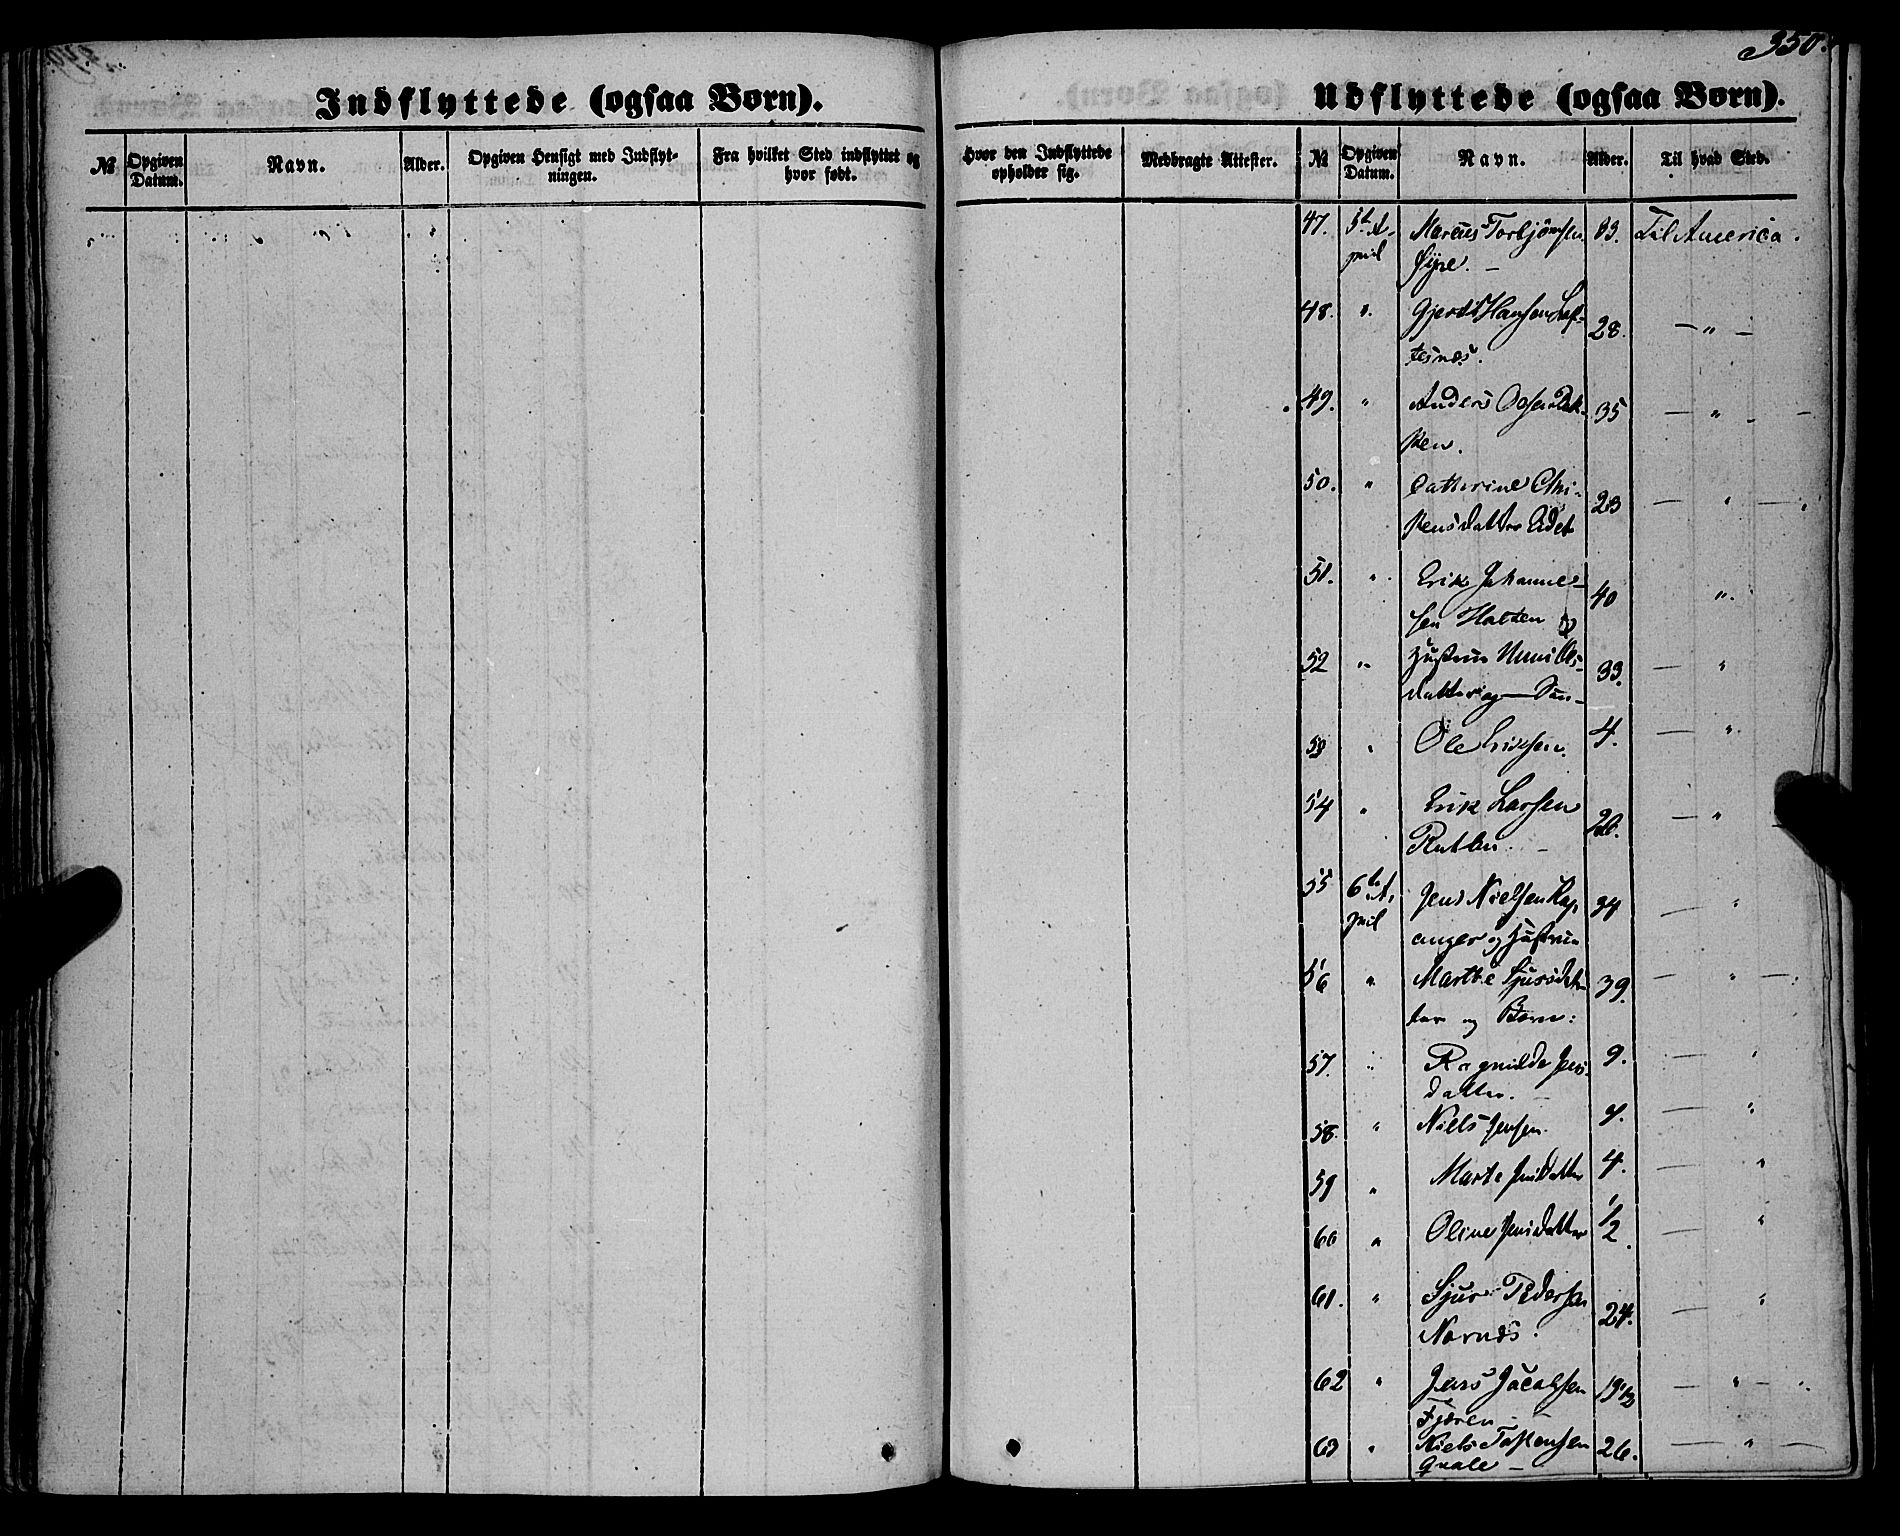 350.
Indflyttede (ogsaa Børn).
Udflyttede (ogsaa Børn).
№ Opgiven Datum. Navn. Alder. Opgiven Hensigt med Indflytningen. Fra hvilket Sted indflyttet og hvor født.
Hvor den Indflyttede opholder sig. Medbragte Attester. № Opgiven Datum. Navn. Alder. Til hvad Sted.
47. April Marcus Torbjörnsen 33. Til America.
Öyre. –
48. " Gjerdt Hansen Lof-
tesnæs. 28. – " –
49. " Anders Olsen 35 – " –
ken.
50. " Catherine Chri-
stensdatter Eidet 23 – " –
51. " Erik Johanne-
sen Hatten og 40 "
52 " Hustru Unni Ols-
datter og Søn – 33. – "
53 " Ole Eriksen. 4. – "
54 " Erik Larsen
Rutlin. – 20. – "
55 6te April Jens Nielsen Kap- 34 – "
anger og Hustru
56 " Marthe Sjursdat-
ter og Børn: 39. – " –
57. " Ragnilde Jens-
datter. – 9. – "
58. " Niels Jensen. 7. – "
59 " Marte Jensdatter 4. – "
60 " Oline Jensdatter 1/2 – "
61. " Sjur Pedersen
Nornes. 24. – "
62 " Jens Jacobsen 19 1/2 – " –
Fjæren –
63 " Niels Tostensen 26. – " –
Quale –